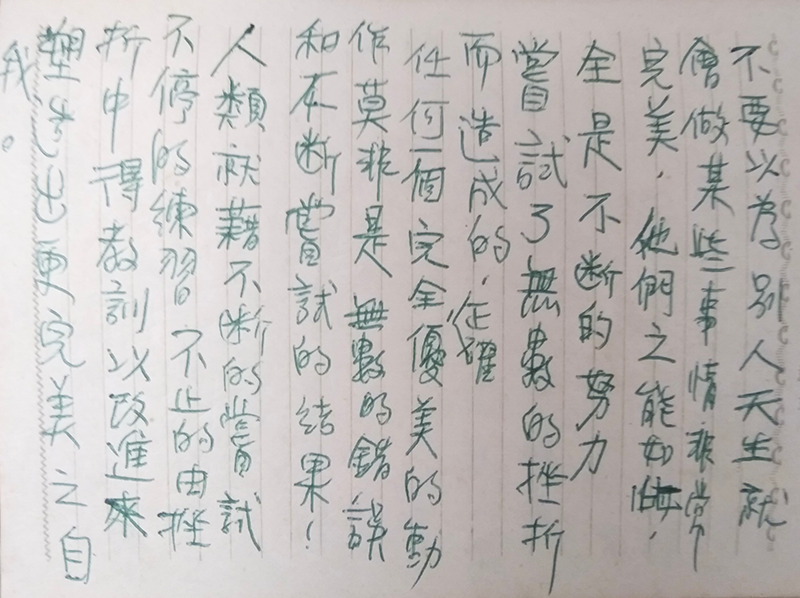 不要以為別人天生就
會做某些事情非常
完美，他們之能如此，
全是不斷的努力
嘗試了無數的挫折
而造成的，任
任何一個完全優美的動
作莫非是無數的錯誤
和不斷嘗試的結果！
人類就藉不斷的嘗試
不停的練習 不止的由挫
折中得教訓以改進來
塑造出更完美之自
我。